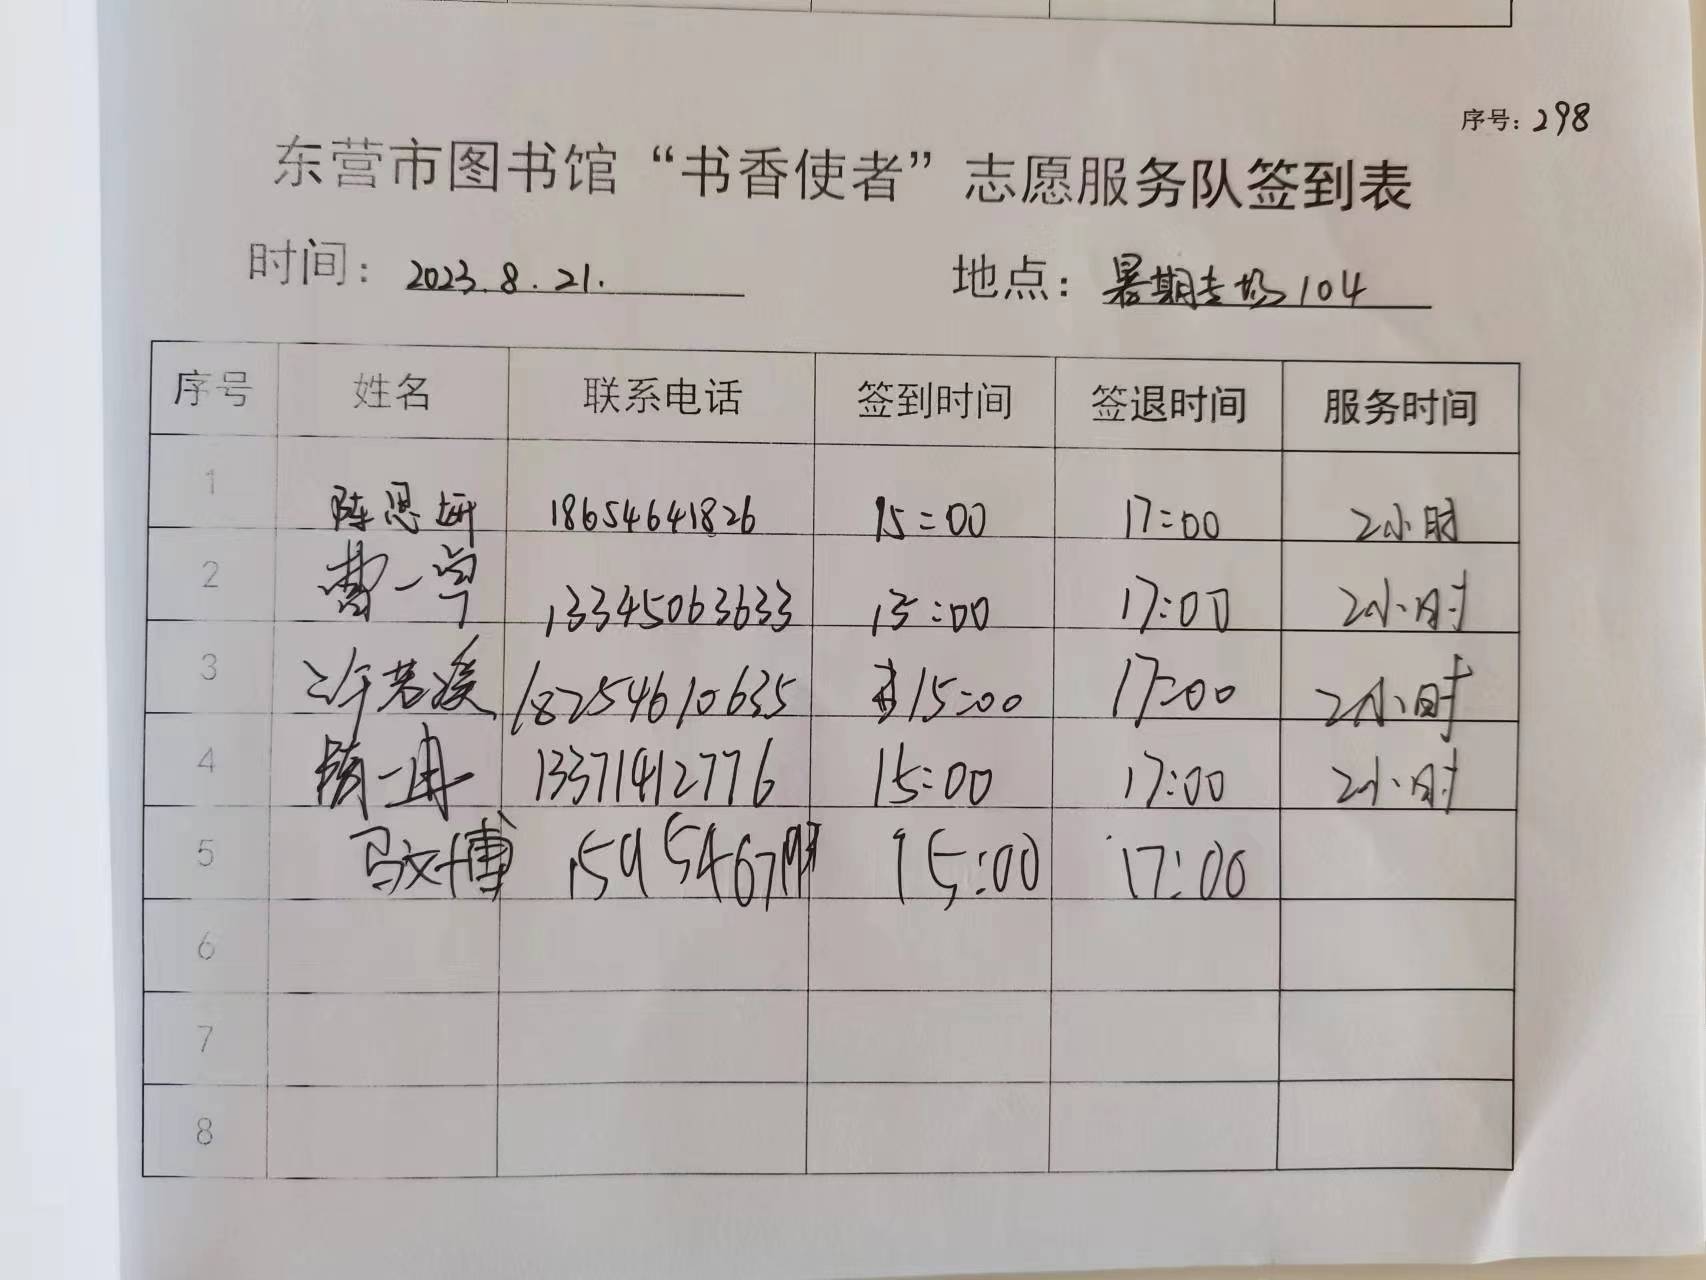 序号：298
东营市图书馆“书香使者”志愿服务队签到表
时间：2023.8.21. 地点：暑期专场104
序号 姓名 联系电话 签到时间 签退时间 服务时间
1 陈思妍 18654641826 15:00 17:00 2小时
2 曹一 13345063633 15:00 17:00 2小时
3 许若溪 18254610635 15:00 17:00 2小时
4 一冉 13371412776 15:00 17:00 2小时
5 马文博 15:00 17:00
6
7
8